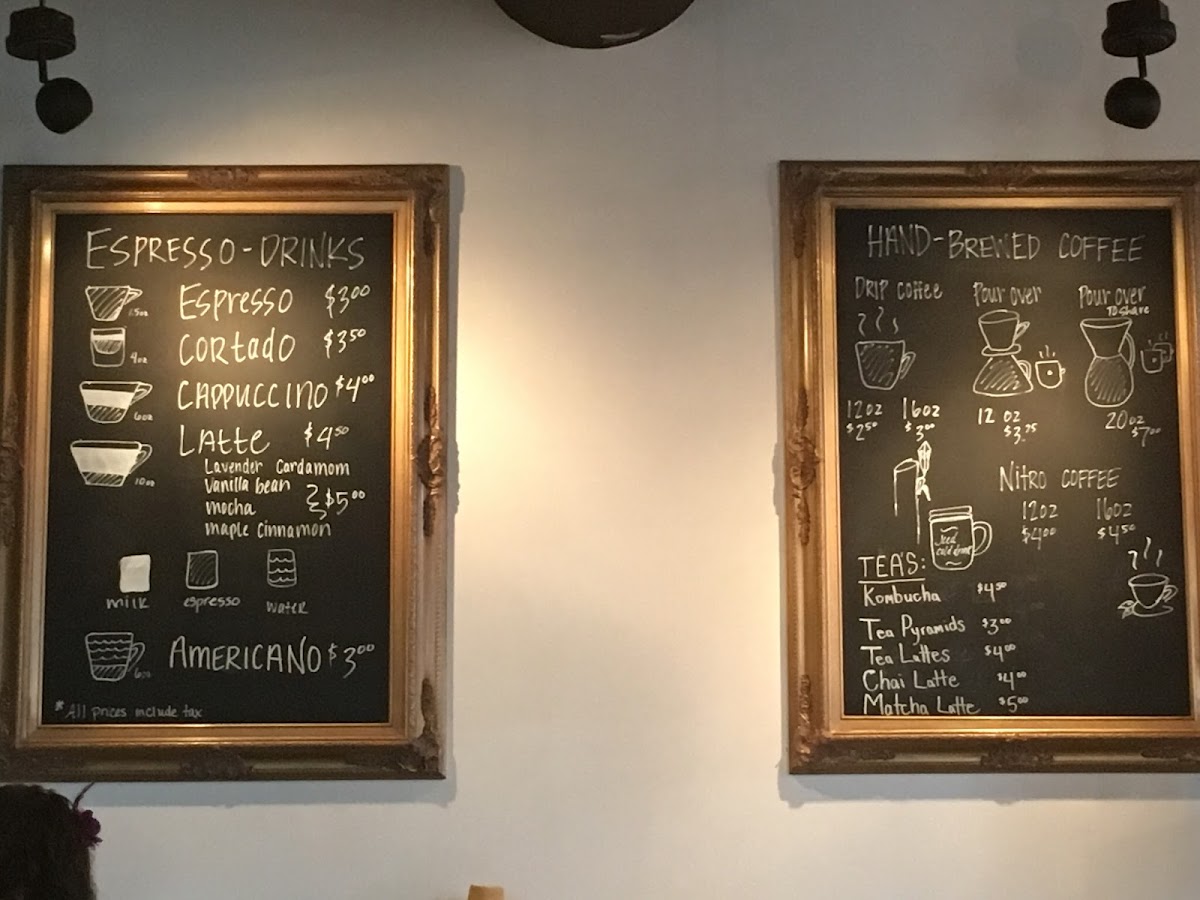 ESPRESSO-DRINKS
1.5oz Espresso $3.00
4oz Cortado $3.50
6oz CAPPUCCINO $4.00
10oz Latte $4.50
Lavender Cardamom
Vanilla bean
mocha } $5.00
maple Cinnamon
milk espresso water
6oz AMERICANO $3.00
*All prices include tax
HAND-BREWED COFFEE
DRIP coffee Pour over Pour over
TO Share
12oz 16oz 12 oz 20oz
$2.50 $3.00 $3.75 $7.00
NITRO COFFEE
12oz 16oz
$4.00 $4.50
Iced
TEA'S:
Kombucha $4.50
Tea Pyramids $3.00
Tea Lattes $4.00
Chai Latte $4.00
Matcha Latte $5.00